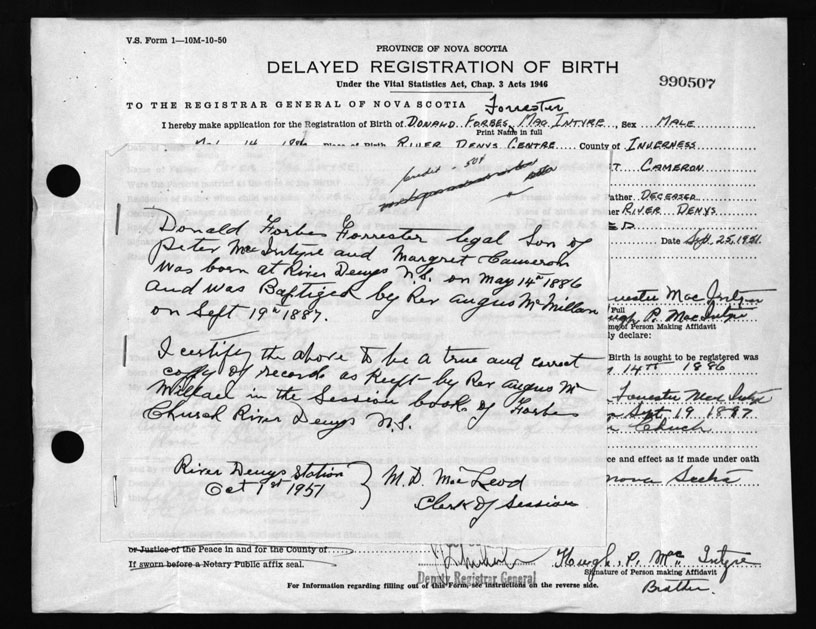 V.S. Form 1—10M-10-50
PROVINCE OF NOVA SCOTIA
DELAYED REGISTRATION OF BIRTH
Under the Vital Statistics Act, Chap. 3 Acts 1946
990507
TO THE REGISTRAR GENERAL OF NOVA SCOTIA
Forrester
I hereby make application for the Registration of Birth of DONALD FORBES MAC INTYRE, Sex MALE
Print Name in full
14 1886 Place of Birth RIVER DENYS CENTRE County of INVERNESS
Credit 50¢
CAMERON
ather DECEASED
her RIVER DENYS
Date Sept. 25, 1951
Donald Forbes Forrester legal Son of
Peter MacIntyre and Margret Cameron
was born at River Denys N.S. on May 14th 1886
and was Baptized by Rev Angus McMillan
on Sept 19th 1887.
Forrester Mac Intyre
Full
Hugh P. MacIntyre
me of Person Making Affidavit
y declare:
Birth is sought to be registered was
14th 1886
I certify the above to be a true and correct
copy of records as Keept by Rev Angus Mc
Millan in the Session book of Forbes
Church River Denys N.S.
Forrester MacIntyre
Sept. 19 1887
Church
ce and effect as if made under oath
Nova Scotia
River Denys Station
Oct 1st 1951
M.D. MacLeod
Clerk of Session
or Justice of the Peace in and for the County of
If sworn before a Notary Public affix seal.
Deputy Registrar General
Hough. P. Mc. Intyre
Signature of Person making Affidavit
Brother.
For Information regarding filling out of this Form, see instructions on the reverse side.